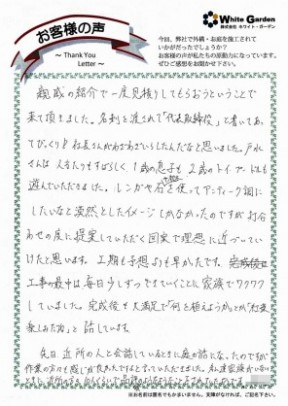 お客様の声
～ Thank You
Letter ～
White Garden
株式会社 ホワイト・ガーデン
今回、弊社で外構・お庭を施工されて
いかがだったでしょうか？
お客様の声が私たちの原動力になっています。
ぜひご感想をお聞かせ下さい。
親戚の紹介で一度見積りしてもらおうということで
来て頂きました。名刺を渡されて「代表取締役」と書いてあ
ってびっくり!! 社長さんがわざわざいらしたんだなと思いました。
さんは 人当たりもすばらしく、1歳の息子も 2歳の
遊んでいただきました。レンガや石を使ってアンティーク調に
したいなと漠然としたイメージしかなかったのですが 打合
わせの度に提案していただく図案で理想に近づいてい
けたと思います。工期も予想よりも早かったです。
工事の最中は 毎日少しずつできていくことに 家族でワクワク
していました。完成後も大満足で「何を植えようか」とか
楽しみだね」と話しています。
先日 近所の人と会話しているときに庭の話になったのですが
作業の方も感じが良かったですねと言っていただきました。